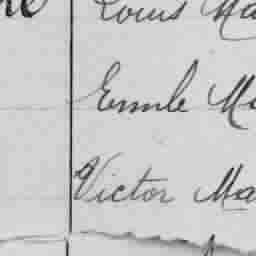 Louis Ma
Emile Ma
Victor Ma